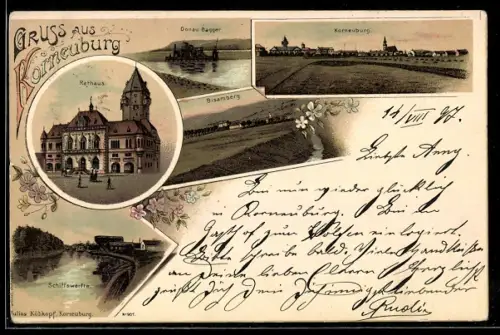 Gruss aus
Korneuburg
Donau-Bagger
Korneuburg.
Rathaus.
Bisamberg.
Schiffswerfte.
Kühkopf, Korneuburg.
14/VIII 97.
Liebste Anny.
Bin nun wieder glücklich
in Korneuburg. Bin im
Gasthof zum einlogiert.
Bitte schreibe bald. Viele Handküsse
an Deine lieben Eltern Herzlichst
grüßt Dich Dein